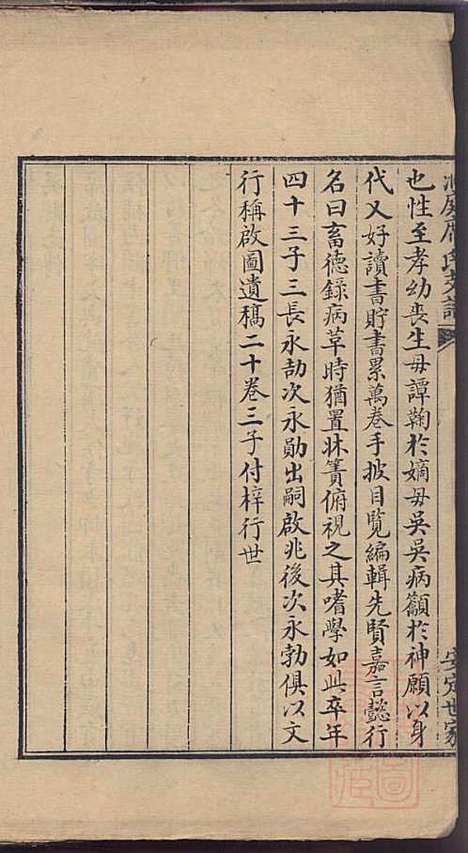 也性至孝幼喪生母譚鞠於嫡母吳吳病籲於神願以身
代又好讀書貯書累萬卷手披目覽編輯先賢嘉言懿行
名曰畜德錄病草時猶置牀簀俯視之其嗜學如此卒年
四十三子三長永劼次永勛出嗣啟兆後次永勃俱以文
行稱啟圖遺稿二十卷三子付梓行世
安定世家